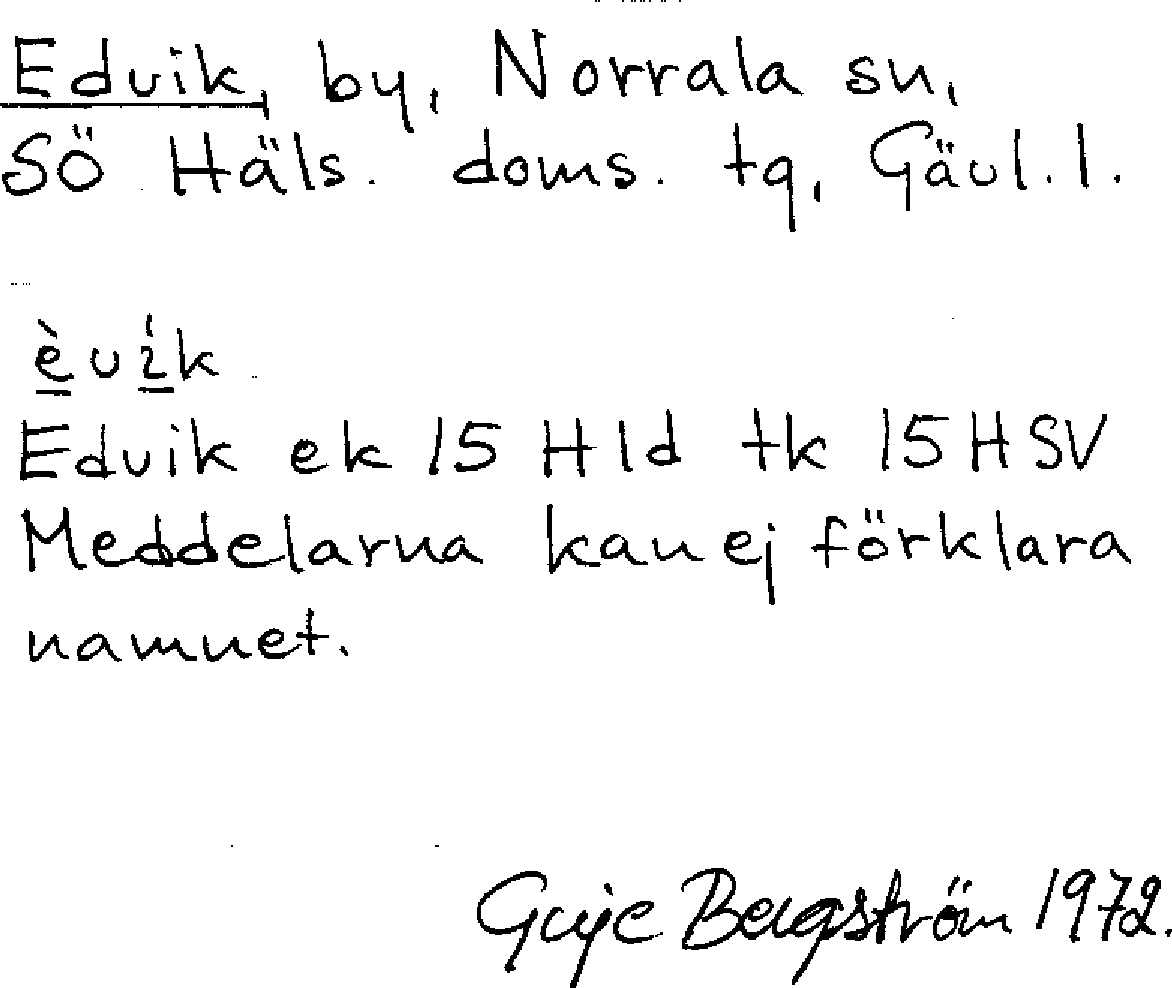 Edvik, by, Norrala sn,
SÖ Häls. doms. tg, Gävl. l.
èvík
Edvik ek 15 Hld tk 15 HSV
Meddelarna kan ej förklara
namnet.
Bergström 1972.